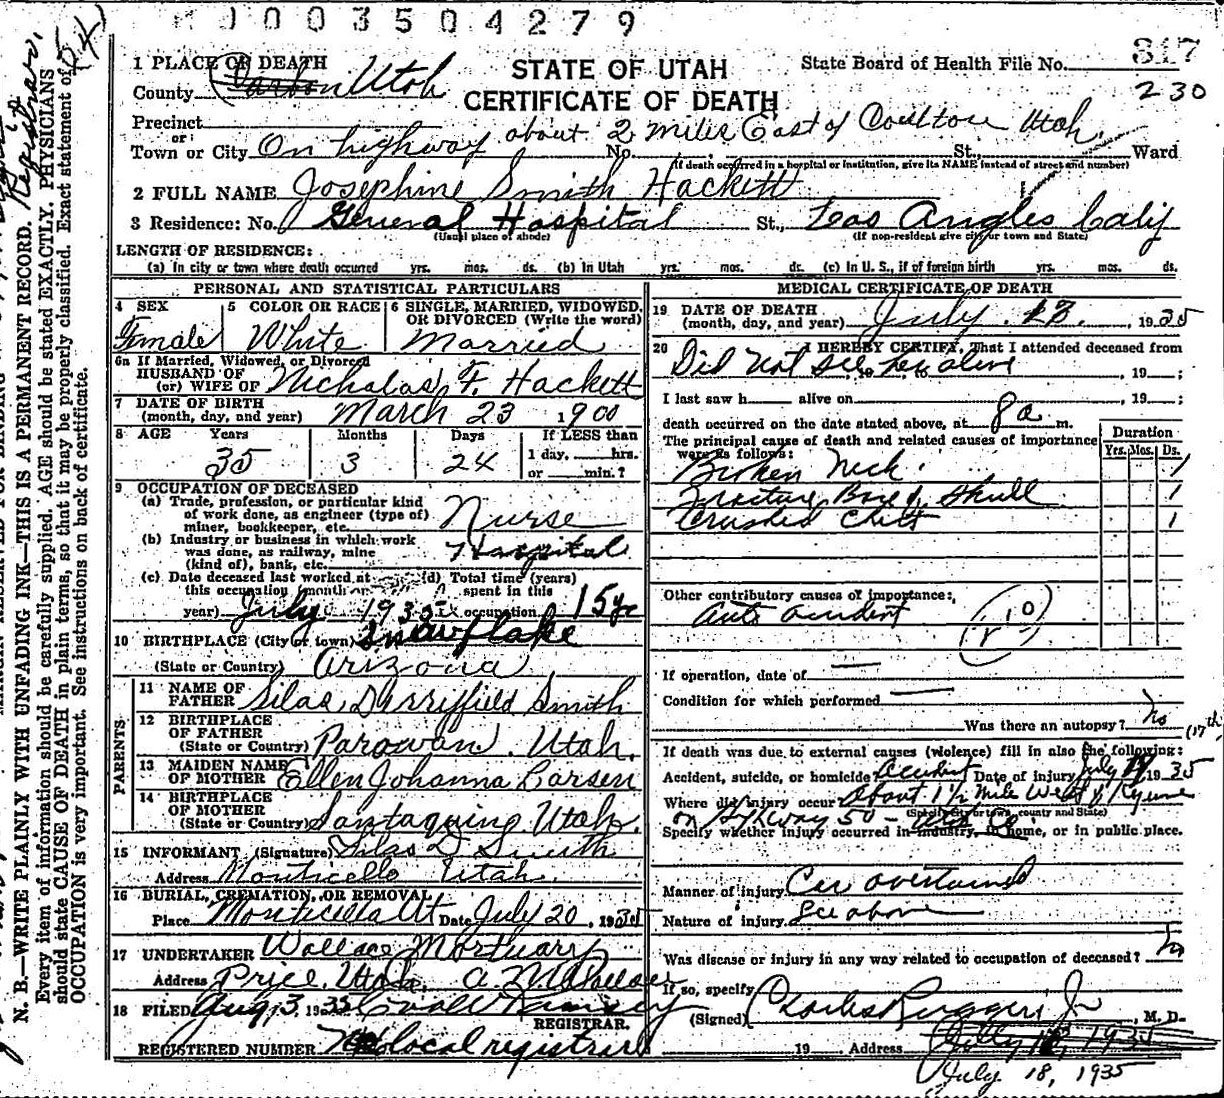 1 0 0 3 5 0 4 2 7 9
1 PLACE OF DEATH
STATE OF UTAH
CERTIFICATE OF DEATH
State Board of Health File No. 817
230
County Carbon Utah
Precinct
or
Town or City On highway about 2 miles East of Utah. No. St., Ward
(If death occurred in a hospital or institution, give its NAME instead of street and number)
2 FULL NAME Josephine Smith Hackett
3 Residence: No. General Hospital St., Los Angles Calif
(Usual place of abode) (If non-resident give city or town and State)
LENGTH OF RESIDENCE:
(a) In city or town where death occurred yrs. mos. ds. (b) In Utah yrs. mos. ds. (c) In U. S., if of foreign birth yrs. mos. ds.
PERSONAL AND STATISTICAL PARTICULARS
4 SEX Female
5 COLOR OR RACE White
6 SINGLE, MARRIED, WIDOWED, OR DIVORCED (Write the word) Married
6a If Married, Widowed, or Divorced
HUSBAND OF
(or) WIFE OF Nicholas F. Hackett
7 DATE OF BIRTH
(month, day, and year) March 23 1900
8 AGE Years Months Days If LESS than
35 3 24 1 day, hrs.
or min.?
9 OCCUPATION OF DECEASED
(a) Trade, profession, or particular kind
of work done, as engineer (type of)
miner, bookkeeper, etc. Nurse
(b) Industry or business in which work
was done, as railway, mine
(kind of), bank, etc. Hospital
(c) Date deceased last worked at
this occupation (month or
year) July 1935
(d) Total time (years)
spent in this
occupation 15 yr
10 BIRTHPLACE (City or town) Snowflake
(State or Country) Arizona
PARENTS
11 NAME OF
FATHER Silas Smith
12 BIRTHPLACE
OF FATHER
(State or Country) Parowan, Utah.
13 MAIDEN NAME
OF MOTHER Ellen Johanna Larsen
14 BIRTHPLACE
OF MOTHER
(State or Country) Santaquin, Utah.
15 INFORMANT (Signature) Silas D. Smith
Address Monticello Utah.
16 BURIAL, CREMATION, OR REMOVAL
Place Monticello Ut Date July 20, 1935
17 UNDERTAKER Wallace Mortuary
Address Price, Utah. A. N. Wallace
18 FILED Aug 3, 1935
REGISTRAR.
REGISTERED NUMBER local registrar
MEDICAL CERTIFICATE OF DEATH
19 DATE OF DEATH
(month, day, and year) July , 1935
20 I HEREBY CERTIFY, That I attended deceased from
Did not see her alive , 19 ;
I last saw h alive on , 19 ;
death occurred on the date stated above, at 8 a m.
The principal cause of death and related causes of importance
were as follows:
Duration
Yrs. Mos. Ds.
Broken Neck. 1
Fracture Base of Skull 1
Crushed Chest 1
Other contributory causes of importance:
Auto accident
If operation, date of
Condition for which performed
Was there an autopsy? No
(17th)
If death was due to external causes (violence) fill in also the following:
Accident, suicide, or homicide Accident Date of injury July 1935
Where did injury occur About 1 1/2 Mile West of
(Specify city or town, county and State)
on Highway 50 -
Specify whether injury occurred in industry, in home, or in public place.
Manner of injury Car overturned
Nature of injury See above
Was disease or injury in any way related to occupation of deceased? No
If so, specify
(Signed) Charles Ruggeri Jr , M. D.
19 Address
July 18, 1935
N. B.—WRITE PLAINLY WITH UNFADING INK—THIS IS A PERMANENT RECORD.
Every item of information should be carefully supplied. AGE should be stated EXACTLY. PHYSICIANS
should state CAUSE OF DEATH in plain terms, so that it may be properly classified. Exact statement of
OCCUPATION is very important. See instructions on back of certificate.
Registrar.